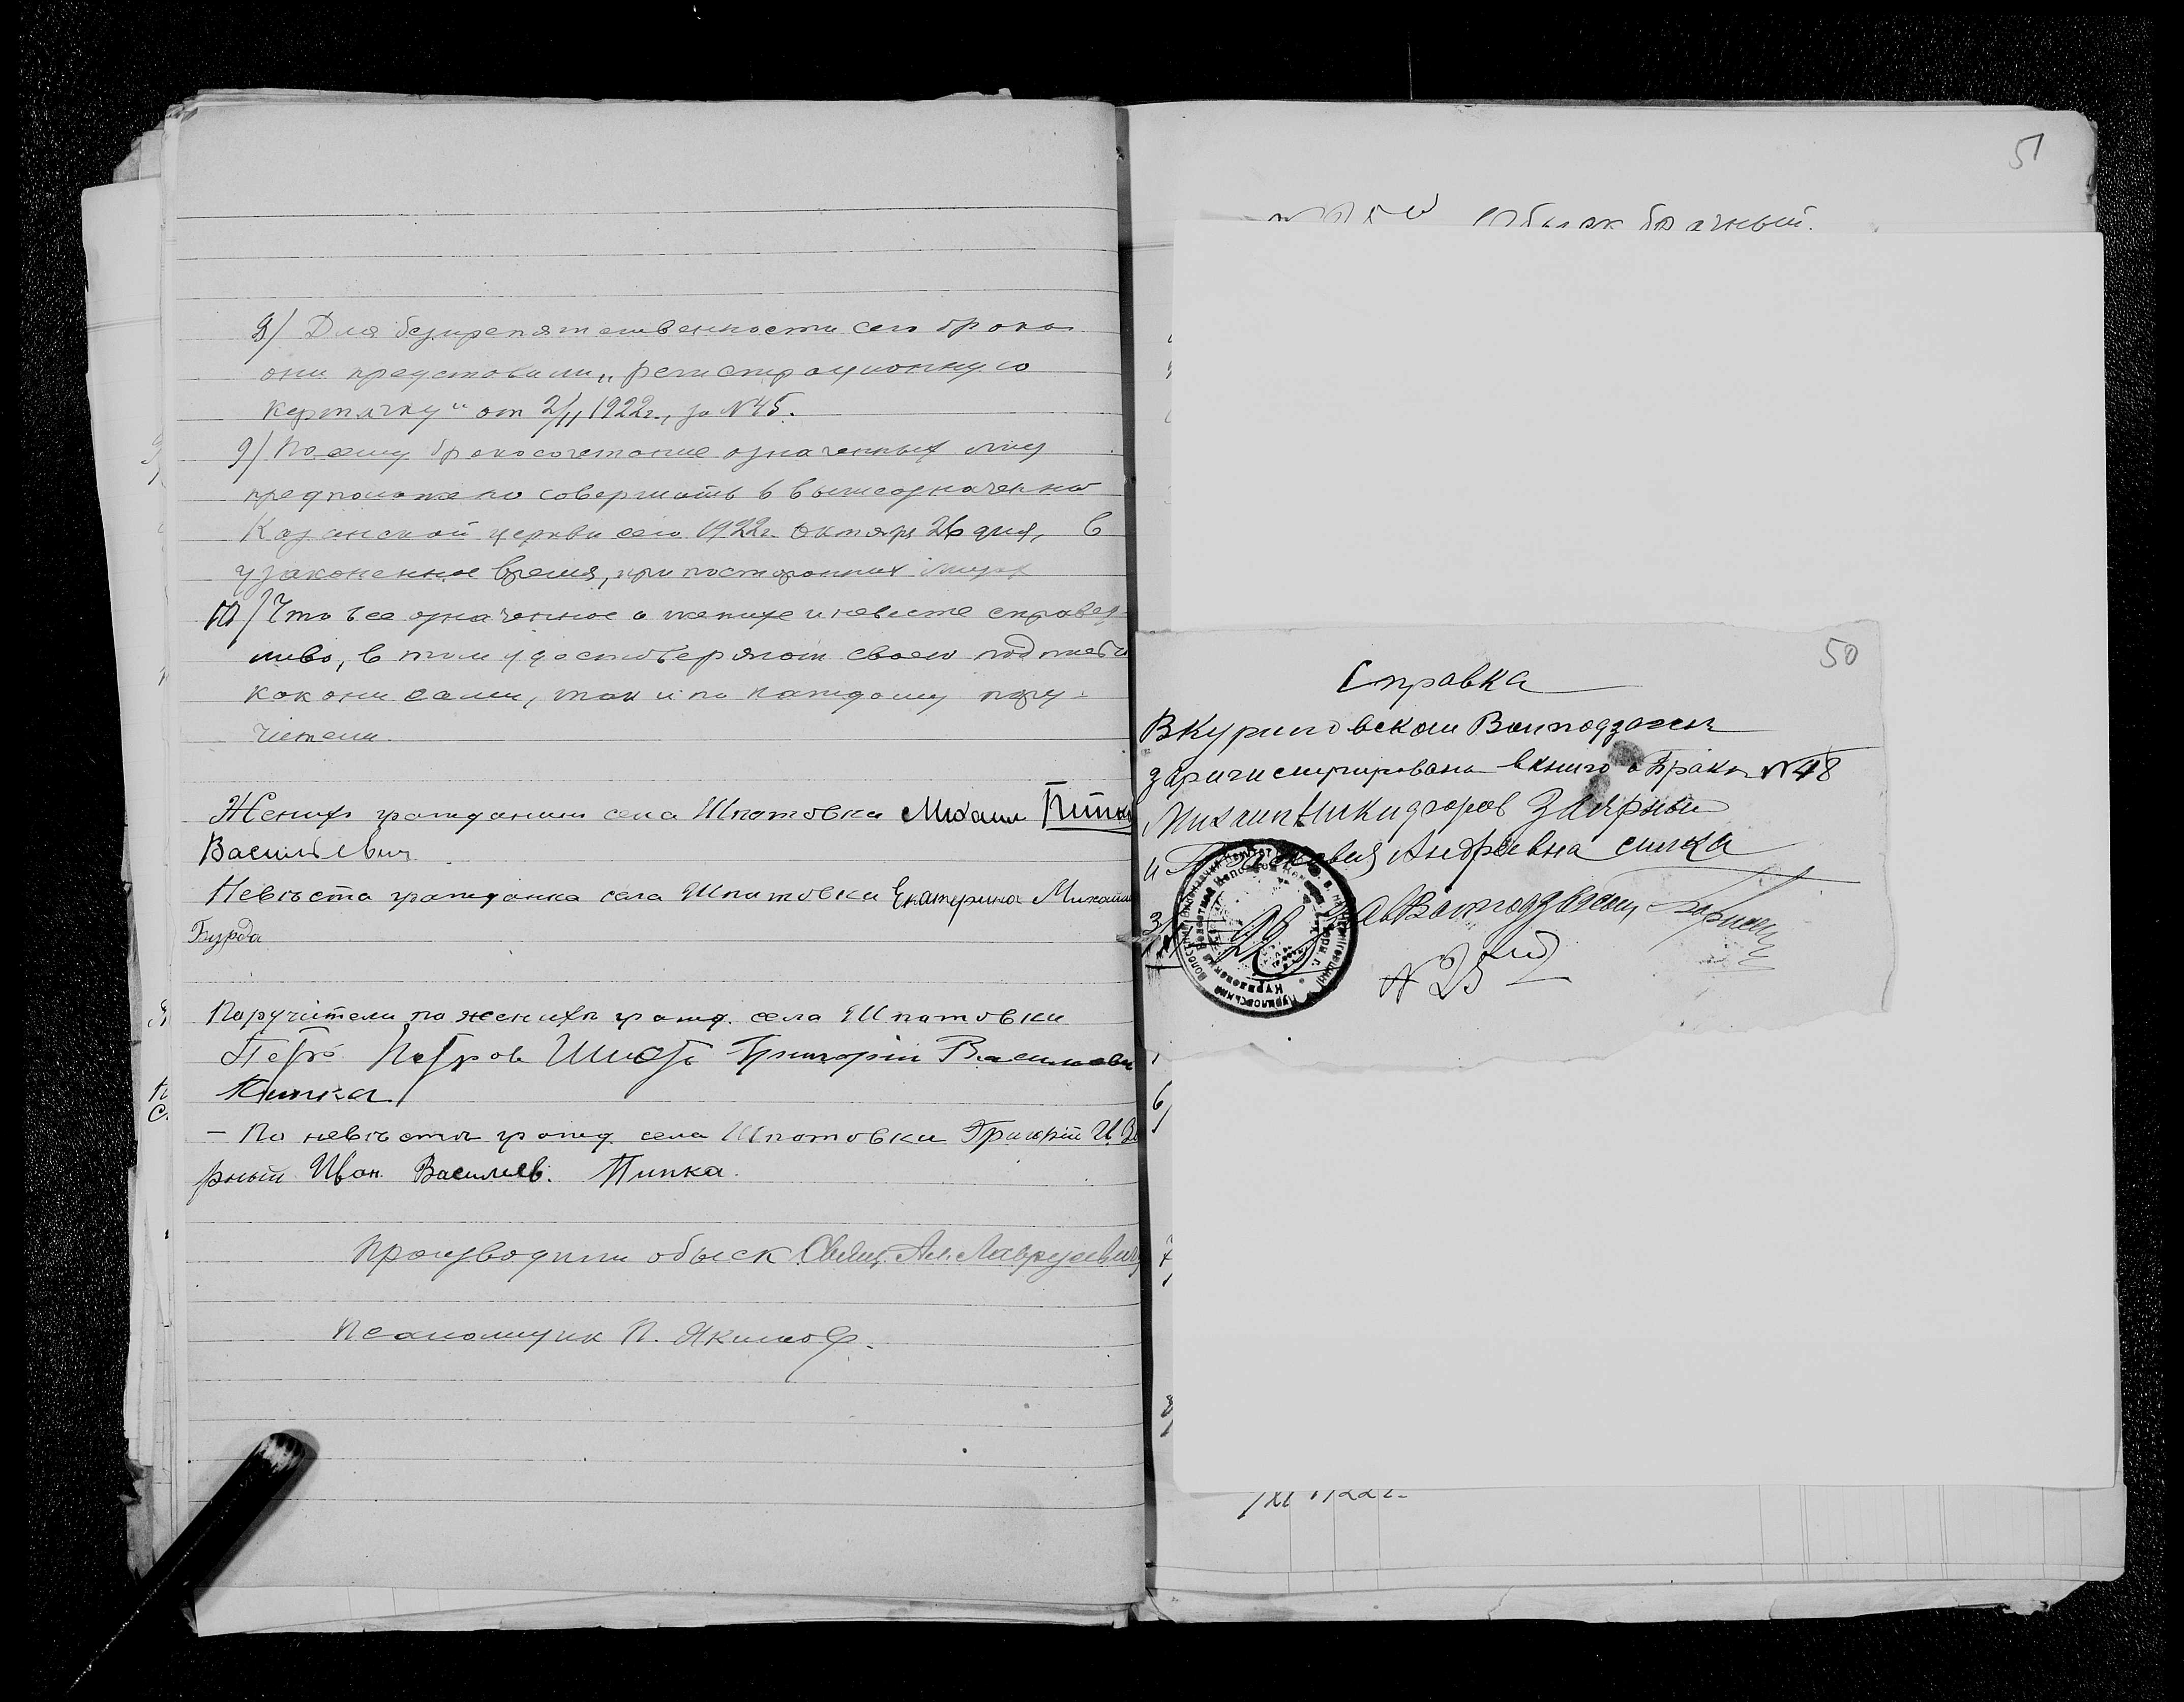 8/ Для безпрепятственности сего брака
они представили „регистрационную
карточку" от 2/11 1922г., за №45.
9/ Посему бракосочетание означенных лиц
предположено совершить в вышеозначенной
Казанской церкви сего 1922г. октября 26 дня, в
узаконенное время, при посторонних лицах
10/ Что все означенное о женихе и невесте справед-
ливо, в том удостоверяют своею подписью
как они сами, так и по каждому пору-
чители.
Жених гражданин села Шпотовки Михаил
Васильевич
Невѣста гражданка села Шпотовки Екатерина
Бурда
Поручители по женихѣ гражд. села Шпотовки
Петро Петров Григорій
Пипка
– По невѣстѣ гражд. села Шпотовки Григорій И.
рный Иван Васильев. Пипка.
Производили обыск Свящ. Ал.
Псаломщик П. Якимов.
51
Обыск брачный.
50
Справка
В Куриловском
зарегистрировано в книге о Браке №48
Михаил Никифоров Заярный
и Андреевна
№25
/XI 1922г.